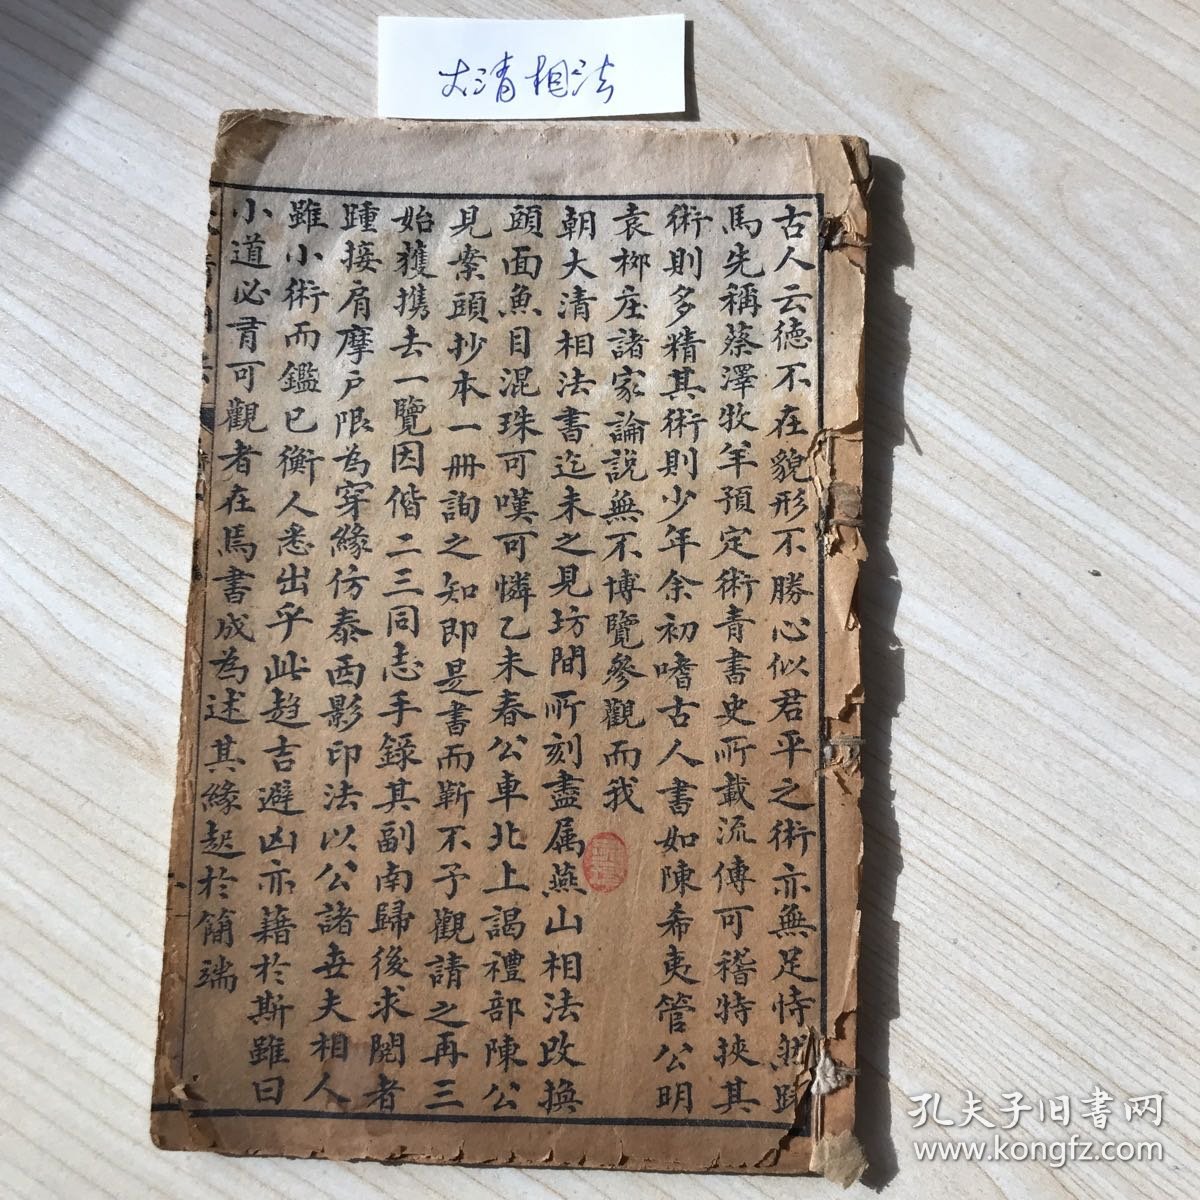 大清相法
古人云德不在貌形不勝心似君平之術亦無足恃然
馬先稱蔡澤牧羊預定術青書史所載流傳可稽特挾其
術則多精其術則少年余初嗜古人書如陳希夷管公明
袁柳庄諸家論說無不博覽參觀而我
朝大清相法書迄未之見坊間所刻盡属燕山相法改換
頭面魚目混珠可嘆可憐乙未春公車北上謁禮部陳公
見案頭抄本一冊詢之知即是書而靳不予觀請之再三
始獲携去一覽因偕二三同志手錄其副南歸後求閱者
踵接肩摩户限為穿緣仿泰西影印法以公諸世夫相人
雖小術而鑑己衡人悉出乎此趋吉避凶亦藉於斯雖曰
小道必有可觀者在焉書成為述其緣起於簡端
孔夫子旧书网
www.kongfz.com